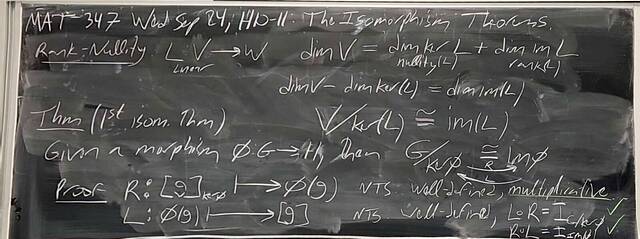 MAT-347 Wed Sep 24, H10-11. The Isomorphism Theorems.
Rank-Nullity L: V → W dim V = dim ker L + dim im L
Linear nullity(L) rank(L)
dim V - dim ker(L) = dim im(L)
Thm (1st isom. Thm) V/ker(L) ≅ im(L)
Given a morphism Ø: G → H, Then G/kerØ ≅ imØ
R
L
Proof R: [g]kerØ ↦ Ø(g) NTS well-defined, multiplicative
L: Ø(g) ↦ [g] NTS well-defined, L∘R = I ✓
R∘L = I ✓